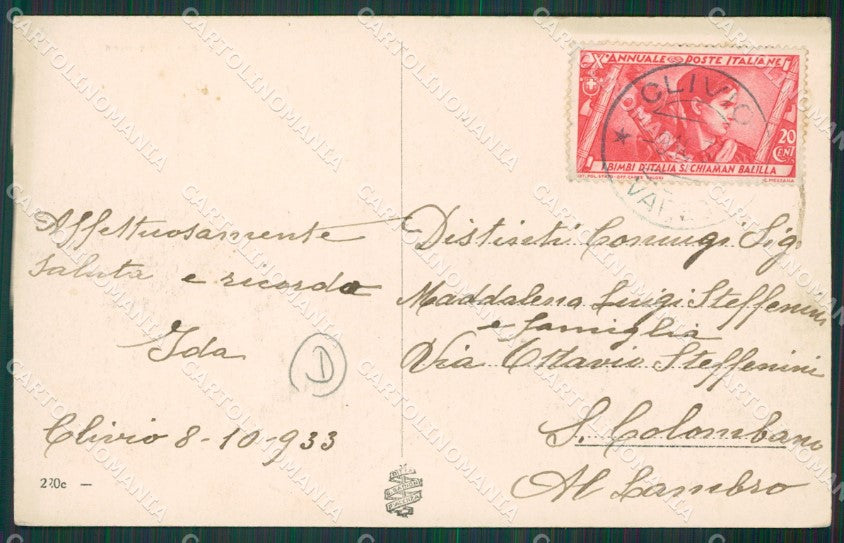 Xº ANNUALE POSTE ITALIANE
20
CENT
I BIMBI D'ITALIA SI CHIAMAN BALILLA
CLIVIO
Affettuosamente
saluta e ricorda
Ida
Clivio 8-10-933
Distinti Coniugi Sig.
Maddalena Luigi Steffenini
e famiglia
Via Ottavio Steffenini
S. Colombano
Al Lambro
D
220c —
CARTOLINOMANIA